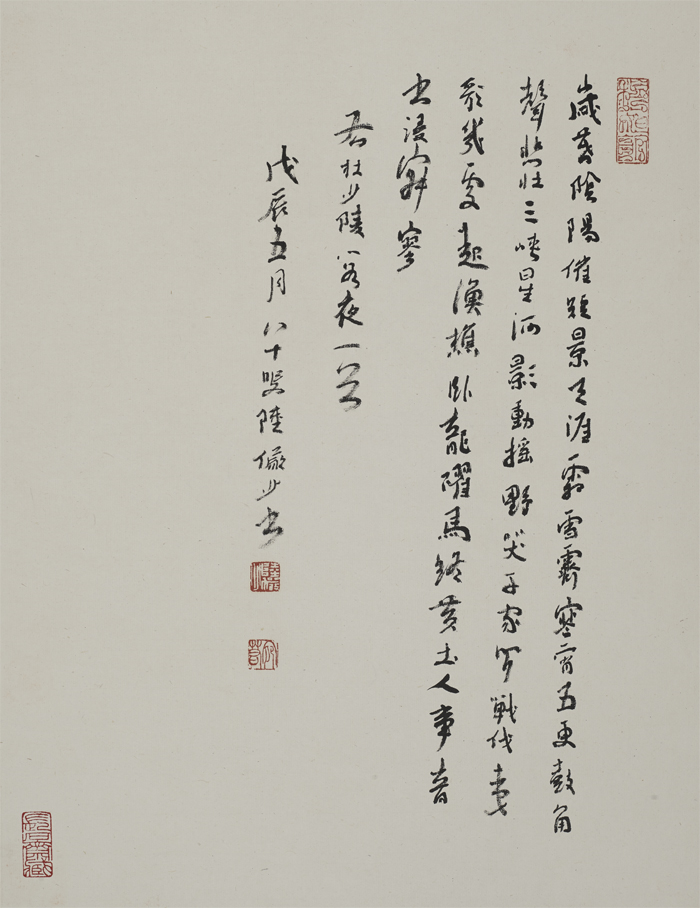 歲暮陰陽催短景天涯霜雪霽寒宵五更鼓角
聲悲壯三峽星河影動搖野哭千家聞戰伐夷
歌幾處起漁樵臥龍躍馬終黃土人事音
書漫寂寥
右杜少陵閣夜一首
戊辰五月八十叟陸儼少書